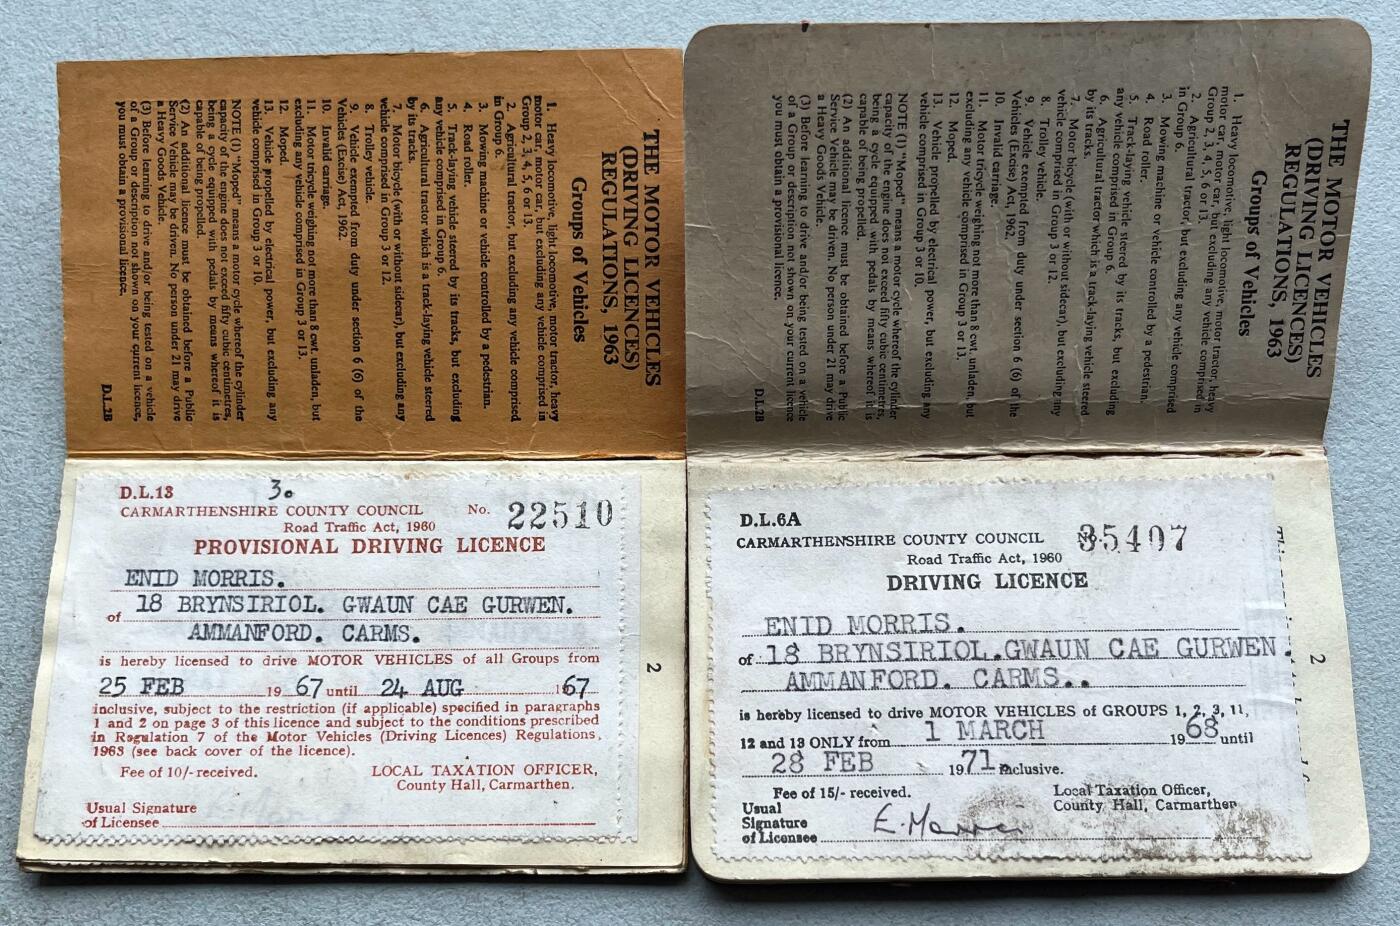 THE MOTOR VEHICLES
(DRIVING LICENCES)
REGULATIONS, 1963
Groups of Vehicles
1. Heavy locomotive, light locomotive, motor tractor, heavy
motor car, motor car, but excluding any vehicle comprised in
Group 2, 3, 4, 5, 6 or 13.
2. Agricultural tractor, but excluding any vehicle comprised
in Group 6.
3. Mowing machine or vehicle controlled by a pedestrian.
4. Road roller.
5. Track-laying vehicle steered by its tracks, but excluding
any vehicle comprised in Group 6.
6. Agricultural tractor which is a track-laying vehicle steered
by its tracks.
7. Motor bicycle (with or without sidecar), but excluding any
vehicle comprised in Group 3 or 12.
8. Trolley vehicle.
9. Vehicle exempted from duty under section 6 (6) of the
Vehicles (Excise) Act, 1962.
10. Invalid carriage.
11. Motor tricycle weighing not more than 8 cwt. unladen, but
excluding any vehicle comprised in Group 3 or 13.
12. Moped.
13. Vehicle propelled by electrical power, but excluding any
vehicle comprised in Group 3 or 10.
NOTE (1) "Moped" means a motor cycle whereof the cylinder
capacity of the engine does not exceed fifty cubic centimetres,
being a cycle equipped with pedals by means whereof it is
capable of being propelled.
(2) An additional licence must be obtained before a Public
Service Vehicle may be driven. No person under 21 may drive
a Heavy Goods Vehicle.
(3) Before learning to drive and/or being tested on a vehicle
of a Group or description not shown on your current licence,
you must obtain a provisional licence.
D.L.2B
D.L.13 3.
CARMARTHENSHIRE COUNTY COUNCIL No. 22510
Road Traffic Act, 1960
PROVISIONAL DRIVING LICENCE
ENID MORRIS.
of 18 BRYNSIRIOL. GWAUN CAE GURWEN.
AMMANFORD. CARMS.
is hereby licensed to drive MOTOR VEHICLES of all Groups from
25 FEB 19 67 until 24 AUG 1967
inclusive, subject to the restriction (if applicable) specified in paragraphs
1 and 2 on page 3 of this licence and subject to the conditions prescribed
in Regulation 7 of the Motor Vehicles (Driving Licences) Regulations,
1963 (see back cover of the licence).
Fee of 10/- received. LOCAL TAXATION OFFICER,
County Hall, Carmarthen.
Usual Signature
of Licensee
2
THE MOTOR VEHICLES
(DRIVING LICENCES)
REGULATIONS, 1963
Groups of Vehicles
1. Heavy locomotive, light locomotive, motor tractor, heavy
motor car, motor car, but excluding any vehicle comprised in
Group 2, 3, 4, 5, 6 or 13.
2. Agricultural tractor, but excluding any vehicle comprised
in Group 6.
3. Mowing machine or vehicle controlled by a pedestrian.
4. Road roller.
5. Track-laying vehicle steered by its tracks, but excluding
any vehicle comprised in Group 6.
6. Agricultural tractor which is a track-laying vehicle steered
by its tracks.
7. Motor bicycle (with or without sidecar), but excluding any
vehicle comprised in Group 3 or 12.
8. Trolley vehicle.
9. Vehicle exempted from duty under section 6 (6) of the
Vehicles (Excise) Act, 1962.
10. Invalid carriage.
11. Motor tricycle weighing not more than 8 cwt. unladen, but
excluding any vehicle comprised in Group 3 or 13.
12. Moped.
13. Vehicle propelled by electrical power, but excluding any
vehicle comprised in Group 3 or 10.
NOTE (1) "Moped" means a motor cycle whereof the cylinder
capacity of the engine does not exceed fifty cubic centimetres,
being a cycle equipped with pedals by means whereof it is
capable of being propelled.
(2) An additional licence must be obtained before a Public
Service Vehicle may be driven. No person under 21 may drive
a Heavy Goods Vehicle.
(3) Before learning to drive and/or being tested on a vehicle
of a Group or description not shown on your current licence
you must obtain a provisional licence.
D.L.2B
D.L.6A
CARMARTHENSHIRE COUNTY COUNCIL 35407
Road Traffic Act, 1960
DRIVING LICENCE
ENID MORRIS.
of 18 BRYNSIRIOL.GWAUN CAE GURWEN.
AMMANFORD. CARMS..
is hereby licensed to drive MOTOR VEHICLES of GROUPS 1, 2, 3, 11,
12 and 13 ONLY from 1 MARCH 1968 until
28 FEB 1971 inclusive.
Fee of 15/- received. Local Taxation Officer,
County Hall, Carmarthen
Usual
Signature
of Licensee E. Morris
2